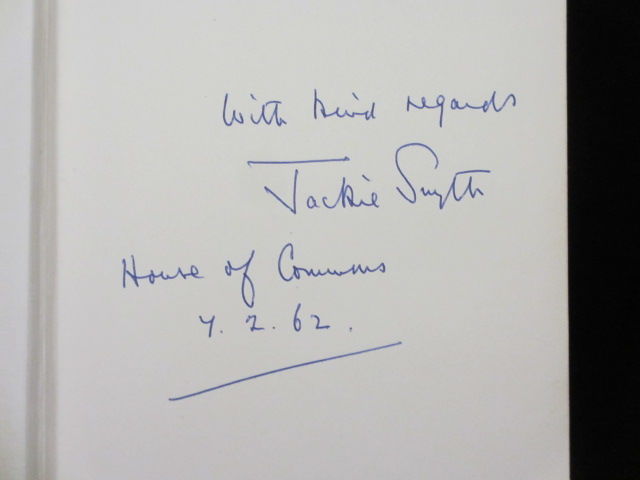 With kind regards
Jackie Smyth
House of Commons
7. 2. 62.